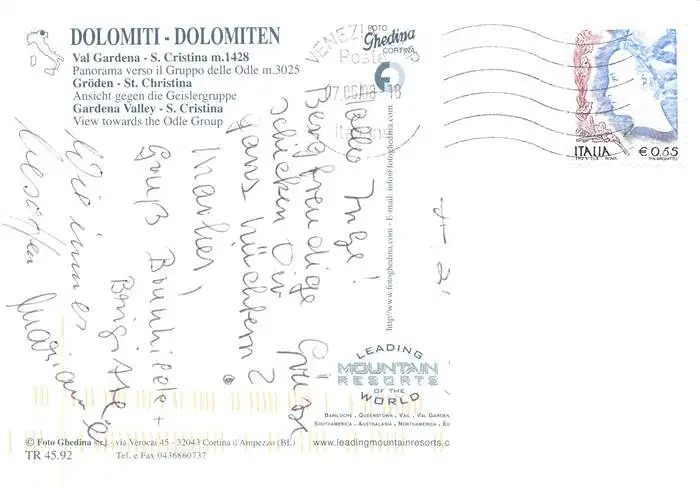 DOLOMITI - DOLOMITEN
Val Gardena - S. Cristina m.1428
Panorama verso il Gruppo delle Odle m.3025
Gröden - St. Christina
Ansicht gegen die Geislergruppe
Gardena Valley - S. Cristina
View towards the Odle Group
FOTO
Ghedina
CORTINA
VENEZI
Poste
07.06.03 - 18
italiane
ITALIA € 0,65
I.P.Z.S. ROMA
Hallo Inge!
Bergfreudige Grüße
schicken Dir
ganz nüchtern
Marlies,
Gruß Brunhilde +
Brigitte
Wie immer
besoffen
http://www.fotoghedina.com - E-mail: info@fotoghedina.com
LEADING
MOUNTAIN
RESORTS
OF THE
WORLD
BARILOCHE . QUEENSTOWN . VAIL . VAL GARDEN
SOUTHAMERICA . AUSTRALASIA . NORTHAMERICA . EU
www.leadingmountainresorts.c
© Foto Ghedina s.r.l. - via Verocai 45 - 32043 Cortina d'Ampezzo (BL)
TR 45.92 Tel. e Fax 0436860737